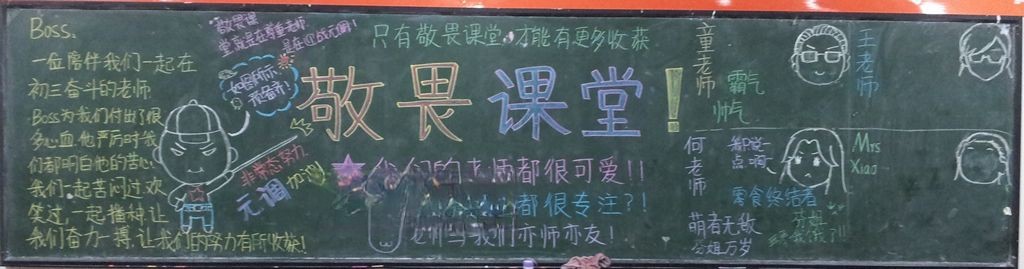 Boss:
一位陪伴我们一起在
初三奋斗的老师
Boss为我们付出了很
多心血,他严厉时我
们都明白他的苦心
我们一起苦闷过,欢
笑过,一起精彩,让
我们奋力一搏,让我们的努力有所收获!
敬畏课
堂就是在尊重老师
非常态努力
元调加油
只有敬畏课堂,才能有更多收获
敬畏课堂!
我们的老师都很可爱!!
都很专注?!
老师与我们亦师亦友!
童老师
霸气
帅气
王老师
何老师
点啊
零食终结者
萌者无敌
公姐万岁
Mrs
Xiao